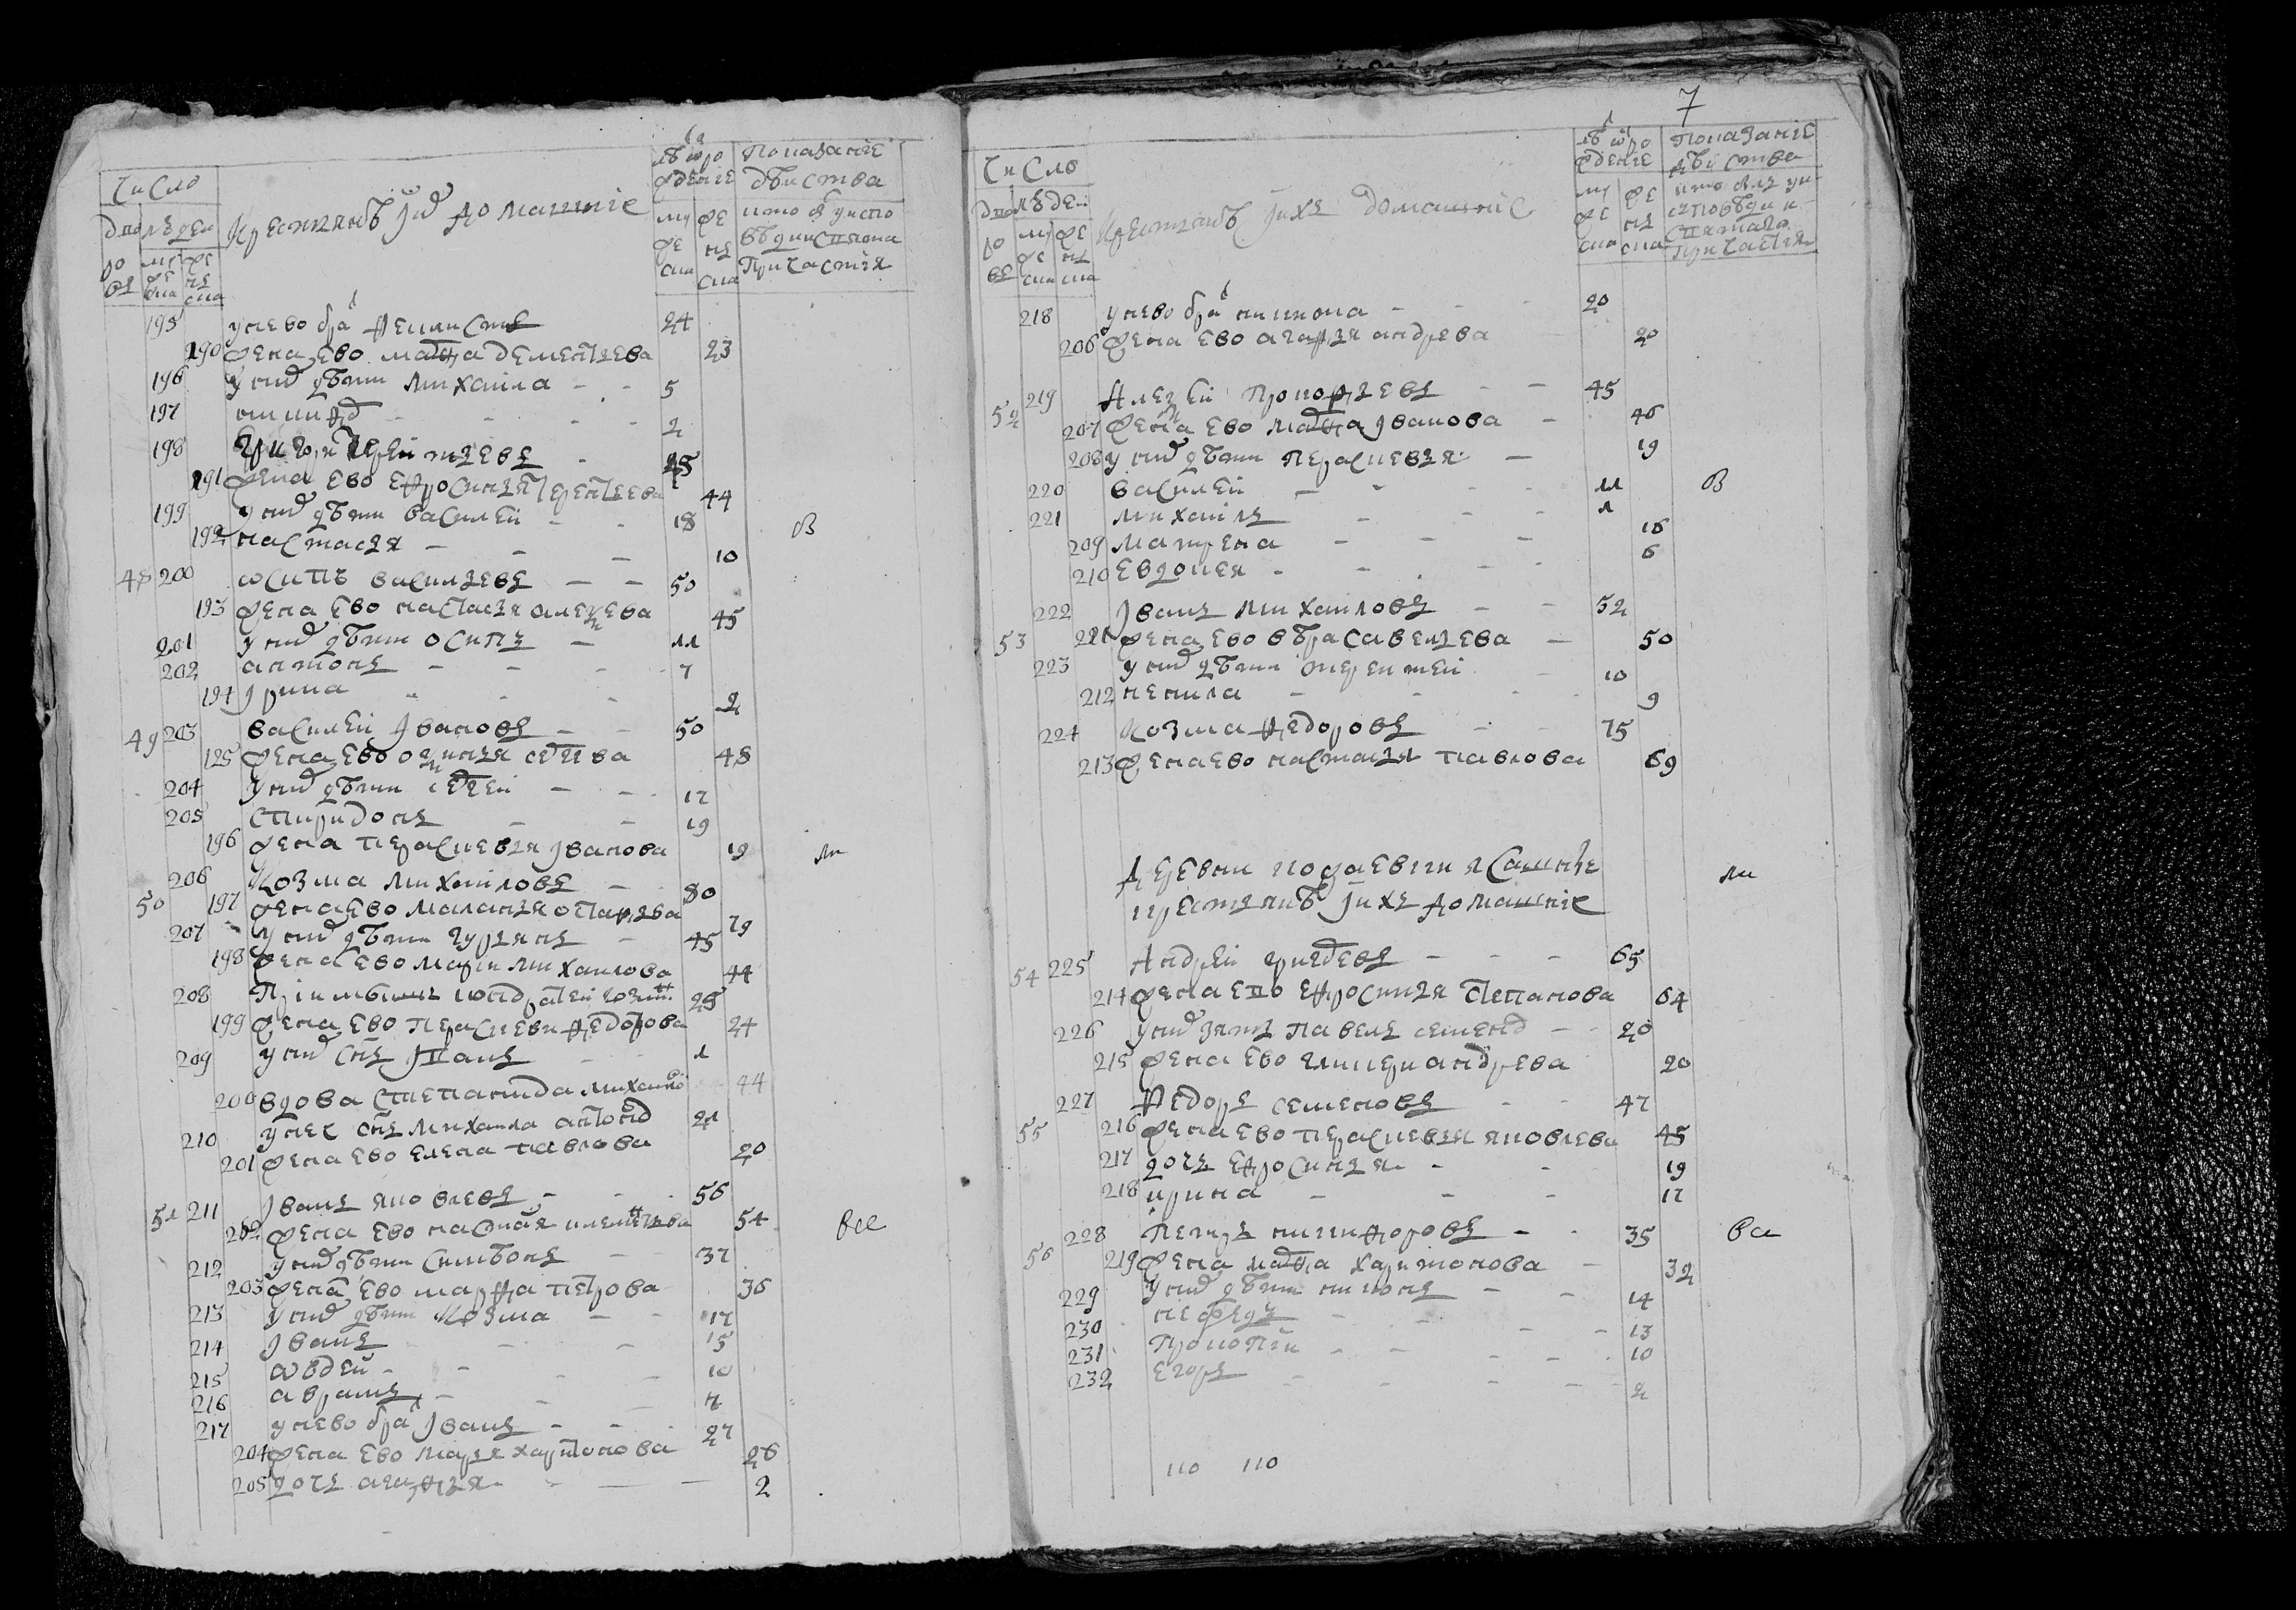 Число
Дворовъ
людей
мужеска
женска
крестьянѣ и ихъ домашніе
лѣта от рожденіе
мужеска
женска
Показаніе
дѣиства
кто былъ у исповѣди и святаго
Причастия
195 у нево братъ Феклистъ 24
190 жена ево Марфа Дементьева 23
196 у них дѣти Михаила - - 5
197 Никифоръ - - - 2
198 Григорей Терентьевъ - 45
191 жена ево Ефросинья Терентьева 44
199 у них дѣти Василей - - 18
192 Настасья - - - 10
в
48 200 Осипъ Васильевъ - - 50
193 жена ево Настасья Алексеева 45
201 у них дѣти Осипъ - 11
202 Антонъ - - - 7
194 Ирина - - - 2
49 203 Василей Ивановъ - - 50
195 жена ево 48
204 у них дѣти Сергей - - 17
205 Спиридонъ - - 19
196 жена Перасковья Иванова 19
ли
50 206 Козма Михаиловъ - 80
197 жена ево Маланья 79
207 у них дѣти Гурьянъ - 45
198 жена ево Марья Михаилова 44
208 25
199 жена ево Перасковья Федорова 24
209 у них сынъ Иванъ - - 1
200 вдова Степанида Михаило 44
210 у нее сынъ Михаила Антонов 21
201 жена ево Елена Павлова 20
51 211 Иванъ Яковлевъ - - 56
202 жена ево Настасья Клементьева 54
все
212 у них дѣти Симѣонъ - - 37
203 жена ево Марфа Петрова 36
213 у них дѣти Козма - - 17
214 Иванъ - - 15
215 Авдей - - - 10
216 Аврамъ - - - 7
217 у нево братъ Иванъ - - 27
204 жена ево Марья Харитонова 26
205 дочь Агафья - - 2
7
Число
Дворовъ
людей
мужеска
женска
Крестьянѣ и ихъ домашніе
лѣта от рожденіе
мужеска
женска
Показаніе
дѣиства
кто былъ у исповѣди и
святаго
Причастия
218 у нево братъ Никона - - - 20
206 жена ево Агафья Андрева 20
52 219 Алексей Прокофьевъ - - 45
207 жена ево Марфа Иванова - 46
208 у них дѣти Перасковья - 19
220 Василей - - - - 11
в
221 Михаилъ - - - 1
209 Матрена - - - 16
210 Евдокея - - - - 6
53 222 Иванъ Михаиловъ - - 52
211 жена ево Вѣра Савельева - 50
223 у них дѣти Терентей - 10
212 Ненила - - - 9
224 Козма Федоровъ - - 75
213 жена ево Настасья Павлова 69
Деревни
крестьянѣ и ихъ домашніе
ли
54 225 Андрей - - - 65
214 жена ево Ефросинья Степанова 64
226 у них зять Павелъ Семенов - - 20
215 жена ево Гликерия Андрева 20
55 227 Федоръ Семеновъ - - 47
216 жена ево Перасковья Яковлева 45
217 дочь Ефросинья - - 19
218 Ирина - - - 17
56 228 Петръ Никифоровъ - - 35
все
219 жена Марфа Харитонова - 32
229 у них дѣти Никонъ - - 14
230 Нефедъ - - - - 13
231 Прокопий - - - 10
232 Егоръ - - - - 2
110 110